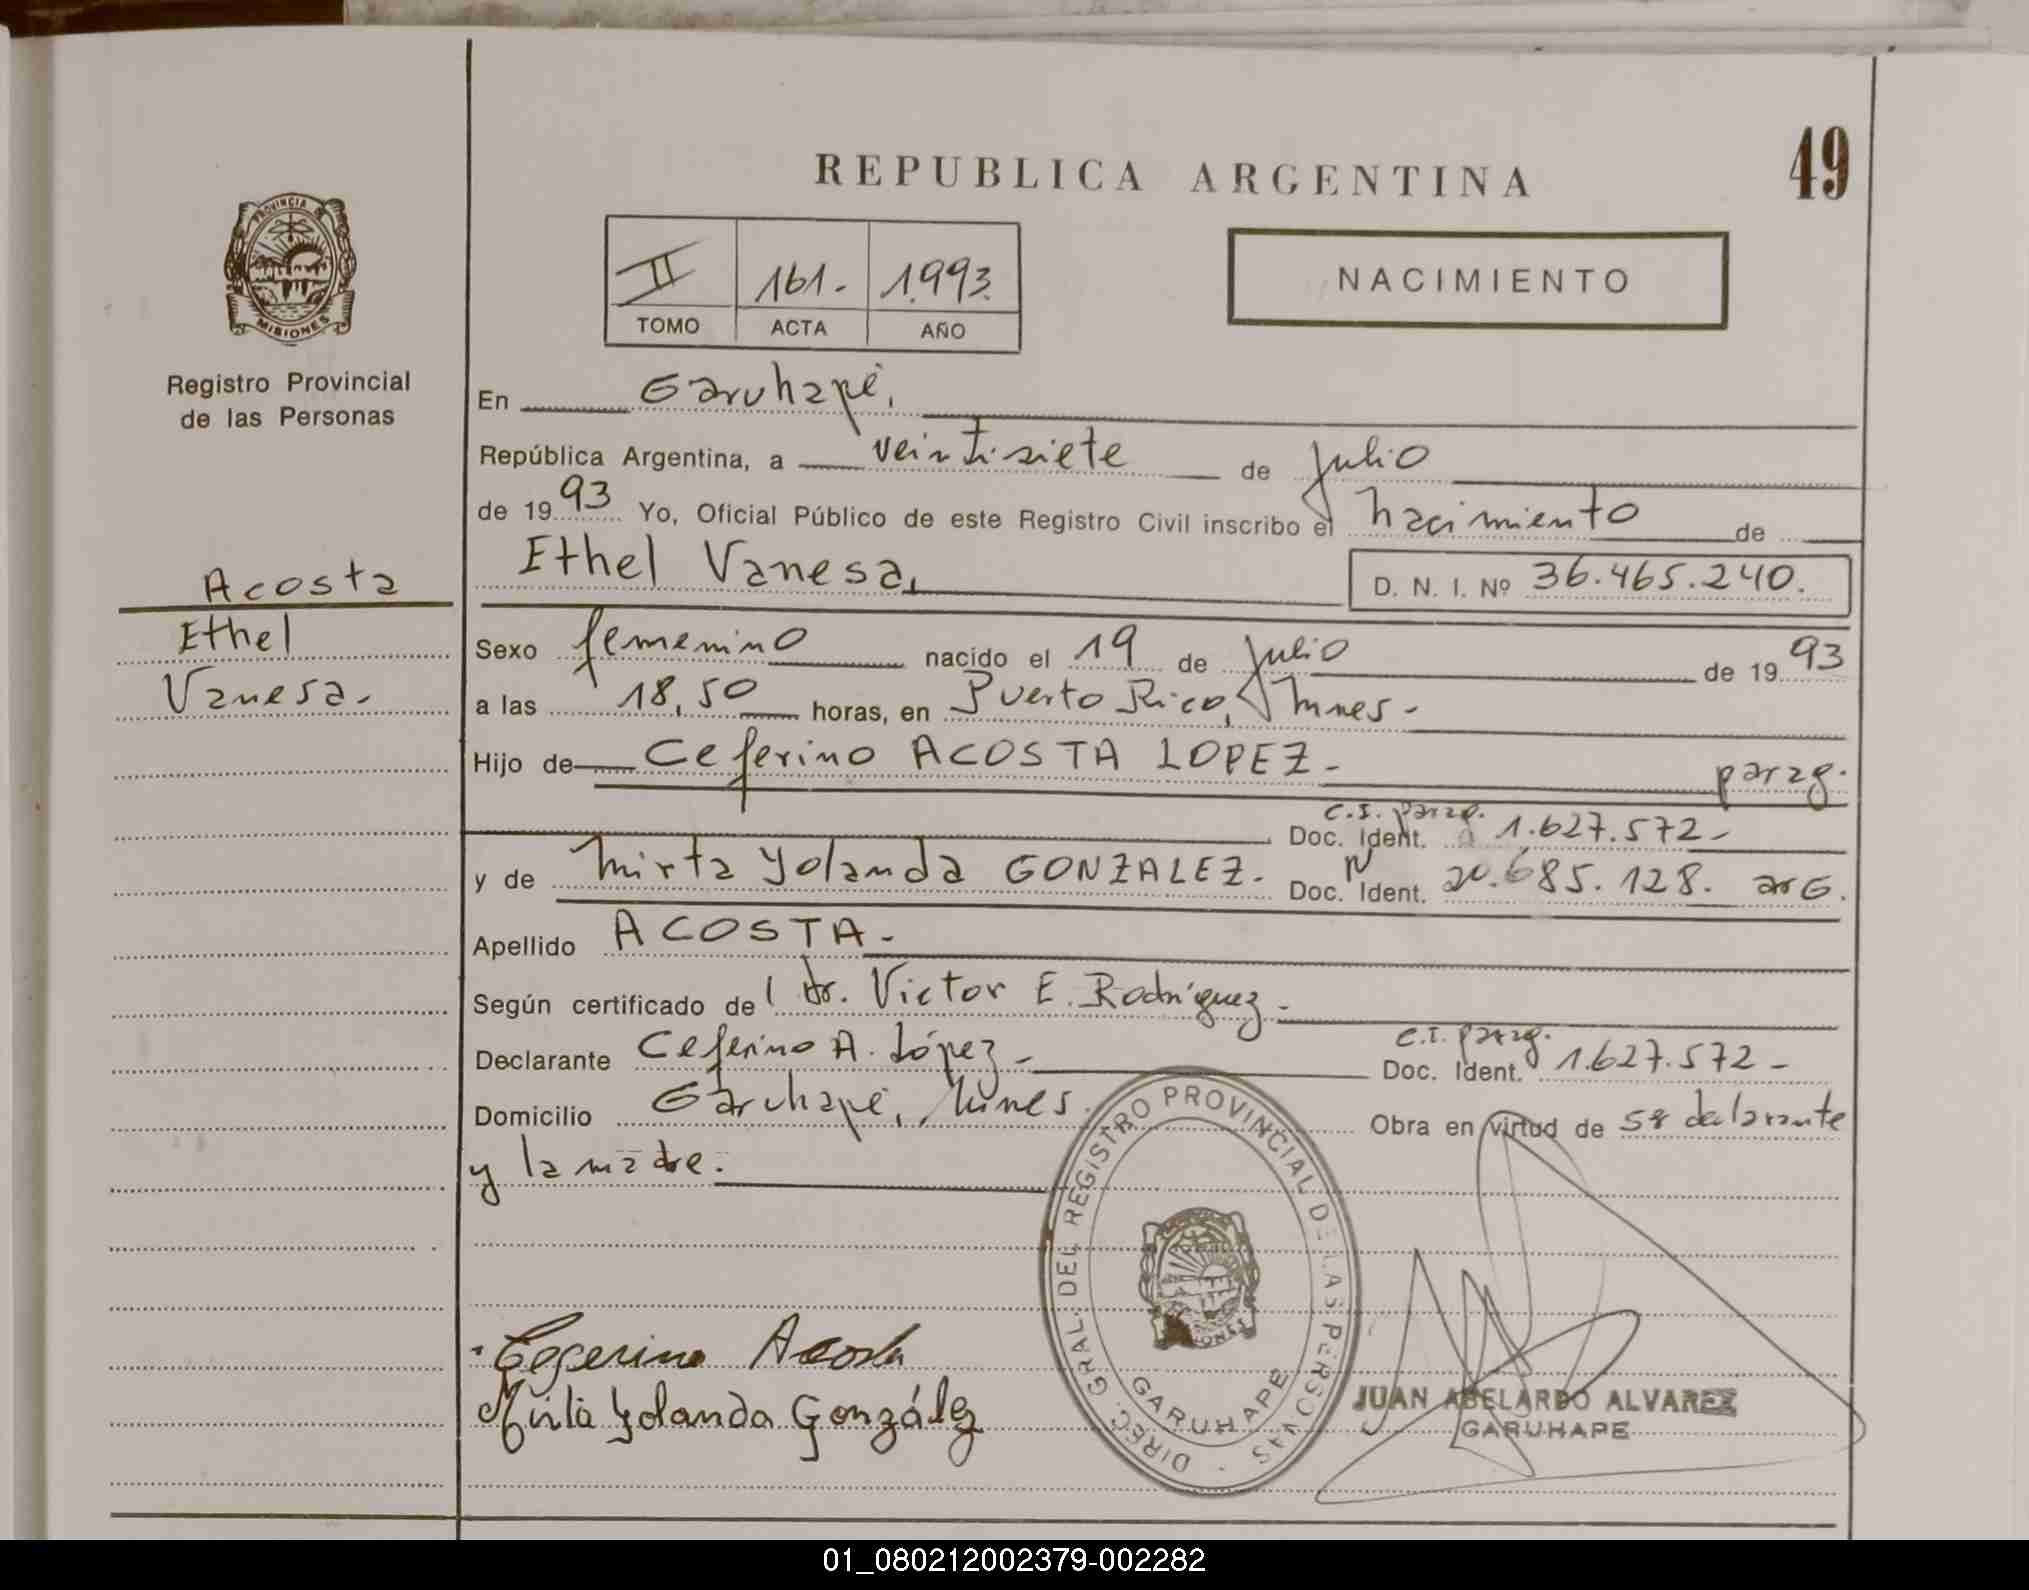 REPUBLICA ARGENTINA
49
PROVINCIA DE
MISIONES
Registro Provincial
de las Personas
II 161.- 1.993.
TOMO ACTA AÑO
NACIMIENTO
En Garuhapé,
República Argentina, a veintisiete de julio
de 1993 Yo, Oficial Público de este Registro Civil inscribo el nacimiento de
Ethel Vanesa,
D. N. I. Nº 36.465.240.
Acosta
Ethel
Vanesa.-
Sexo femenino nacido el 19 de julio de 1993
a las 18,50 horas, en Puerto Rico, Mnes-
Hijo de Ceferino ACOSTA LOPEZ- parag.
C.I. parag.
Doc. Ident. 1.627.572-
y de Mirta Yolanda GONZALEZ. Doc. N Ident. 20.685.128. arG.
Apellido ACOSTA-
Según certificado del dr. Victor E. Rodríguez-
C.I. parag.
Declarante Ceferino A. López- Doc. Ident. 1.627.572-
Domicilio Garuhapé, Mnes. Obra en virtud de ser declarante
y la madre.
DIREC. GRAL. DEL REGISTRO PROVINCIAL DE LAS PERSONAS
MISIONES
GARUHAPE
Ceferino Acosta
Mirta Yolanda González
JUAN ABELARDO ALVAREZ
GARUHAPE
01_080212002379-002282